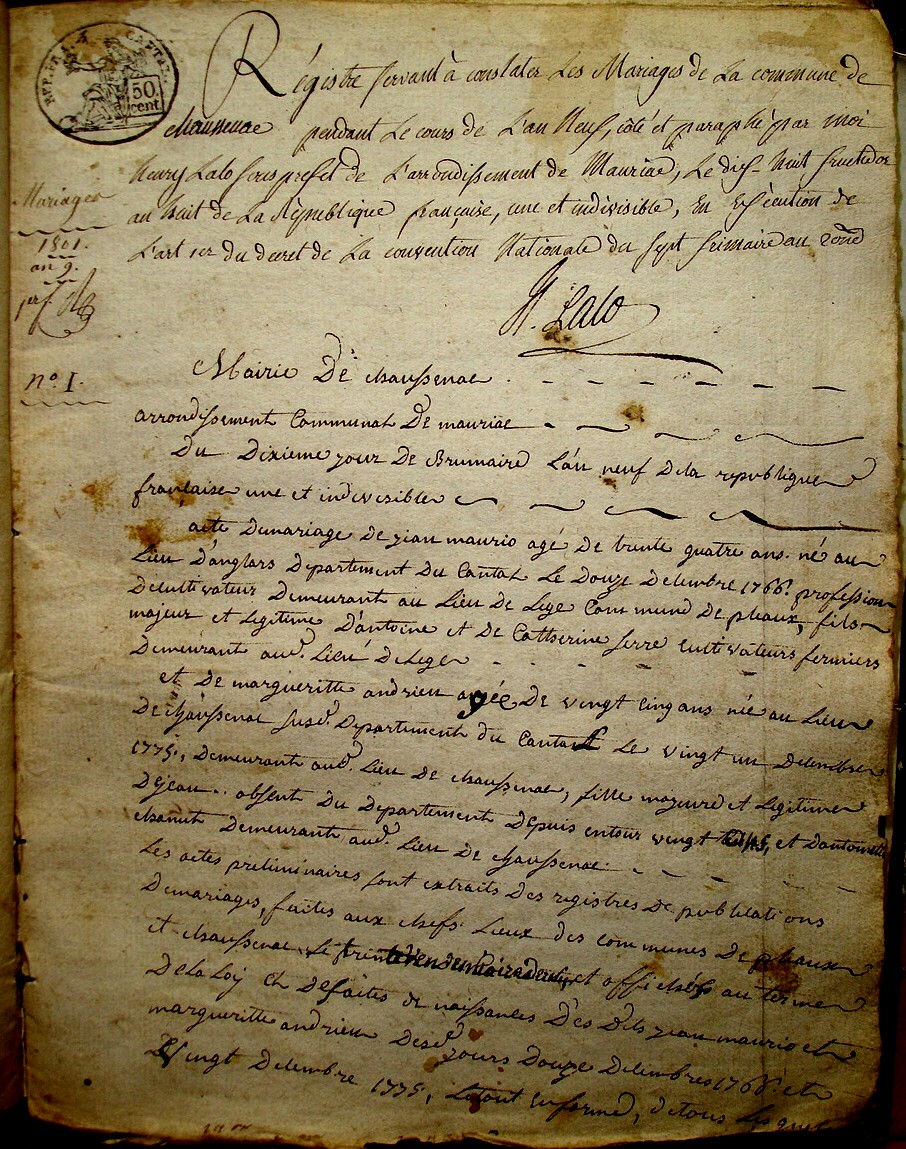 REP. FRA.
CANTAL
50.
cent.
Régistre servant à constater Les Mariages de La commune de
Chaussenac pendant Le cours de L'an Neuf, côté et paraphé par moi
Henry Lalo sous prefet de L'arrondissement de Mauriac, Le dix-huit fructidor
an huit de La République française, une et indivisible, En Exécution de
L'art 1er du decret de La convention Nationale du sept frimaire an 2ond
H. Lalo
Mariages
1801.
an 9.
no. 1.
Mairie De chaussenac
arrondissement Communal De mauriac
Du Dixieme jour De Brumaire L'an neuf Dela republique
francaise une et indivisible
acte Demariage De jean maurio agé De trente quatre ans né au
Lieu D'anglars Departement Du Cantal Le Douze Delembre 1766. profession
Decultivateur Demeurant au Lieu De Lege Commune De pleaux, fils
majeur et Legitime D'antoine et De Catherine serre cultivateurs fermiers
Demeurant aud. Lieu De Lege
et De margueritte andrieu agée De vingt cinq ans née au Lieu
De chaussenac susd. Departement du Cantal Le vingt un Delembre
1775, Demeurant aud. Lieu De chaussenac, fille majeure et Legitime
Dejean.. absent Du Departement Depuis entour vingt et Dantoinette
chanut Demeurant aud. Lieu De chaussenac.
Les actes preliminaires sont extraits Des registres De publications
Demariages, faites aux chefs Lieux des communes De pleaux
et chaussenac Le trente vendemiaire dernier et affichés au terme
De La Loy et Des actes de naissances Des Dits jean maurio et
margueritte andrieu Desd. jours Douze Delembre 1766. et
vingt Delembre 1775, Letout en forme, detous Les quels